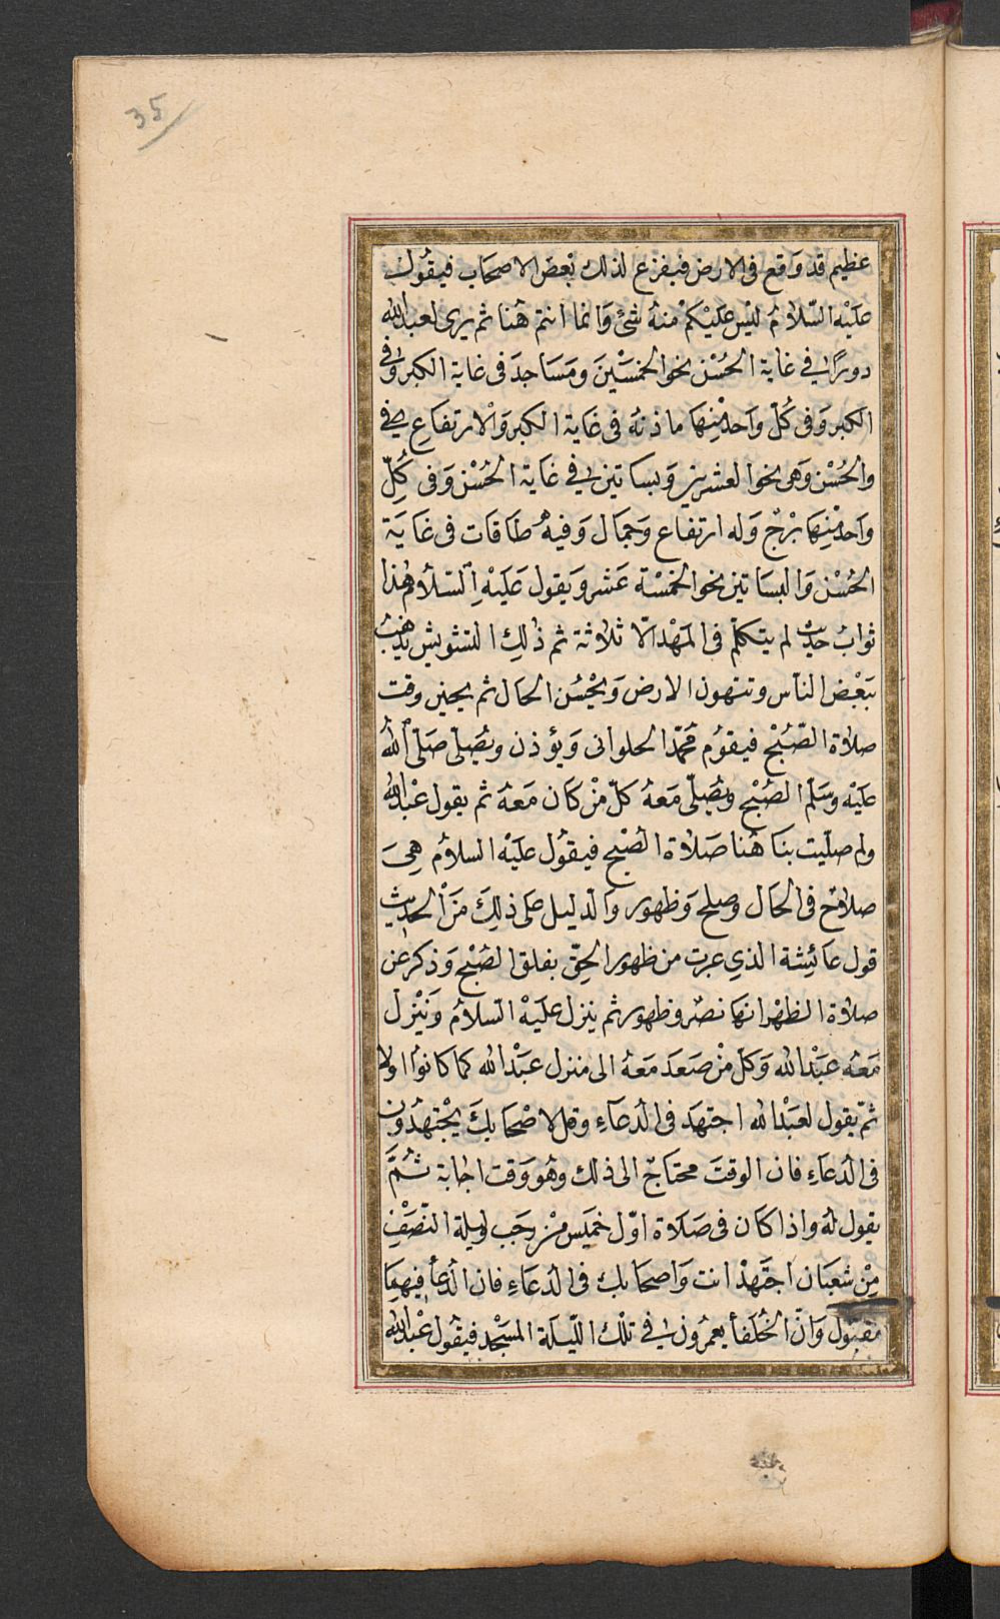 35
عظيم قد وَقع فى الارض فيفزع لذلك بَعضَ الاصحَاب فيقُول
عَلَيْه السّلامُ ليْس عَليْكمْ منهُ شئٌ وَانما انتمْ هُنا ثم يرى لعبد الله
دورًا فے غاية الحُسْن نحوا لخمسْينَ ومَسَاجدَ فى غاية الكبر وفى
الكبر وَفى كُلّ واَحد مْنِهَا ماذنهَ فى غَاية الكبر وَالارتفَاعِ فے
والحُسْن وَهى نحوا لعشرين وَبسَاتين فے غَاية الحُسْن وَفى كِلّ
واَحد مْنِهَا بُرْجٌ وَله ارتفاع وَجمَال وَفيهُ طَاقَات فى غَايَة
الحُسْن وَالبسَاتين نحوا لخمْسْة عَشر وَيقول عَليَهْ السّلاُم هٰذا
ثوابُ حديث لم يتكلّم فى المَهْد الّا ثلاثة ثم ذٰلِك التشويش يَذهبُ
بَبَعْض الناس وتتهون الارض وَيحْسُن الحال ثم يحين وقت
صلاة الصّبْح فيقوُم محُمّد الحلوانى وَيؤذن ويُصَلّى صَلّى اللهُ
عَليَهْ وسَلّم الصُبْحِ ويُصَلّى مَعهُ كلّ مْن كَان مَعَهُ ثم يقول عْبد الله
ولم صلّيت بنَا هُنا صَلاة الصُبْح فيقوُل عَليَهْ السلاُم هِىَ
صلاحٌ فى الحَال وصلح وَظهور وَالدليل عَلى ذلِكَ مَنْ الحديث
قول عائِشة الذي عبرت من ظهور الحقّ بفلق الصُبْح وَذكر عن
صلاة الظهْر انهَا نصٌر وظهور ثم ينزل عَليَهْ السّلامُ وَيَنْزل
مَعَهُ عَبْد الله وَكل مْن صَعدَ مَعهُ الى منزل عَبْد الله كما كانوُا اولا
ثمّ يقول لعَبْد الله اجتهَد فى الدعَاءِ وقل لاصْحَابكَ يْجتهدُون
فى الدعَاءِ فان الوقتَ محتاجٌ الى ذلك وهُو وَقت اجابة ثُمَّ
يقول لهُ واذا كَان فى صَلاة اوّل خميَس مْن رجَب وليلة النّصْفِ
مِنْ شعبَان اجَتهدْ انت وَاصحَابك فى الدعَاءِ فان الدعاُ فيهمَا
مقبُول وَانّ الخلَفأ يعمرُون فے تلْك اللّيلَة المسَجْد فيقوُل عْبد الله